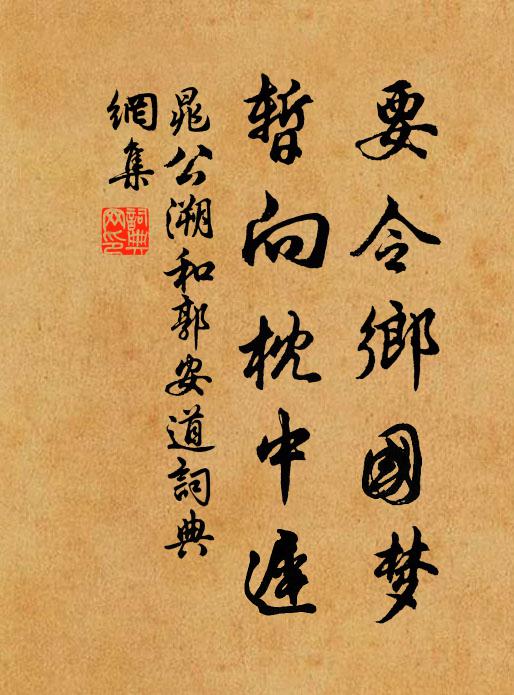 要令鄉國梦
暫向枕中遲
晁公溯和郭安道詞典
網集
詞典網印